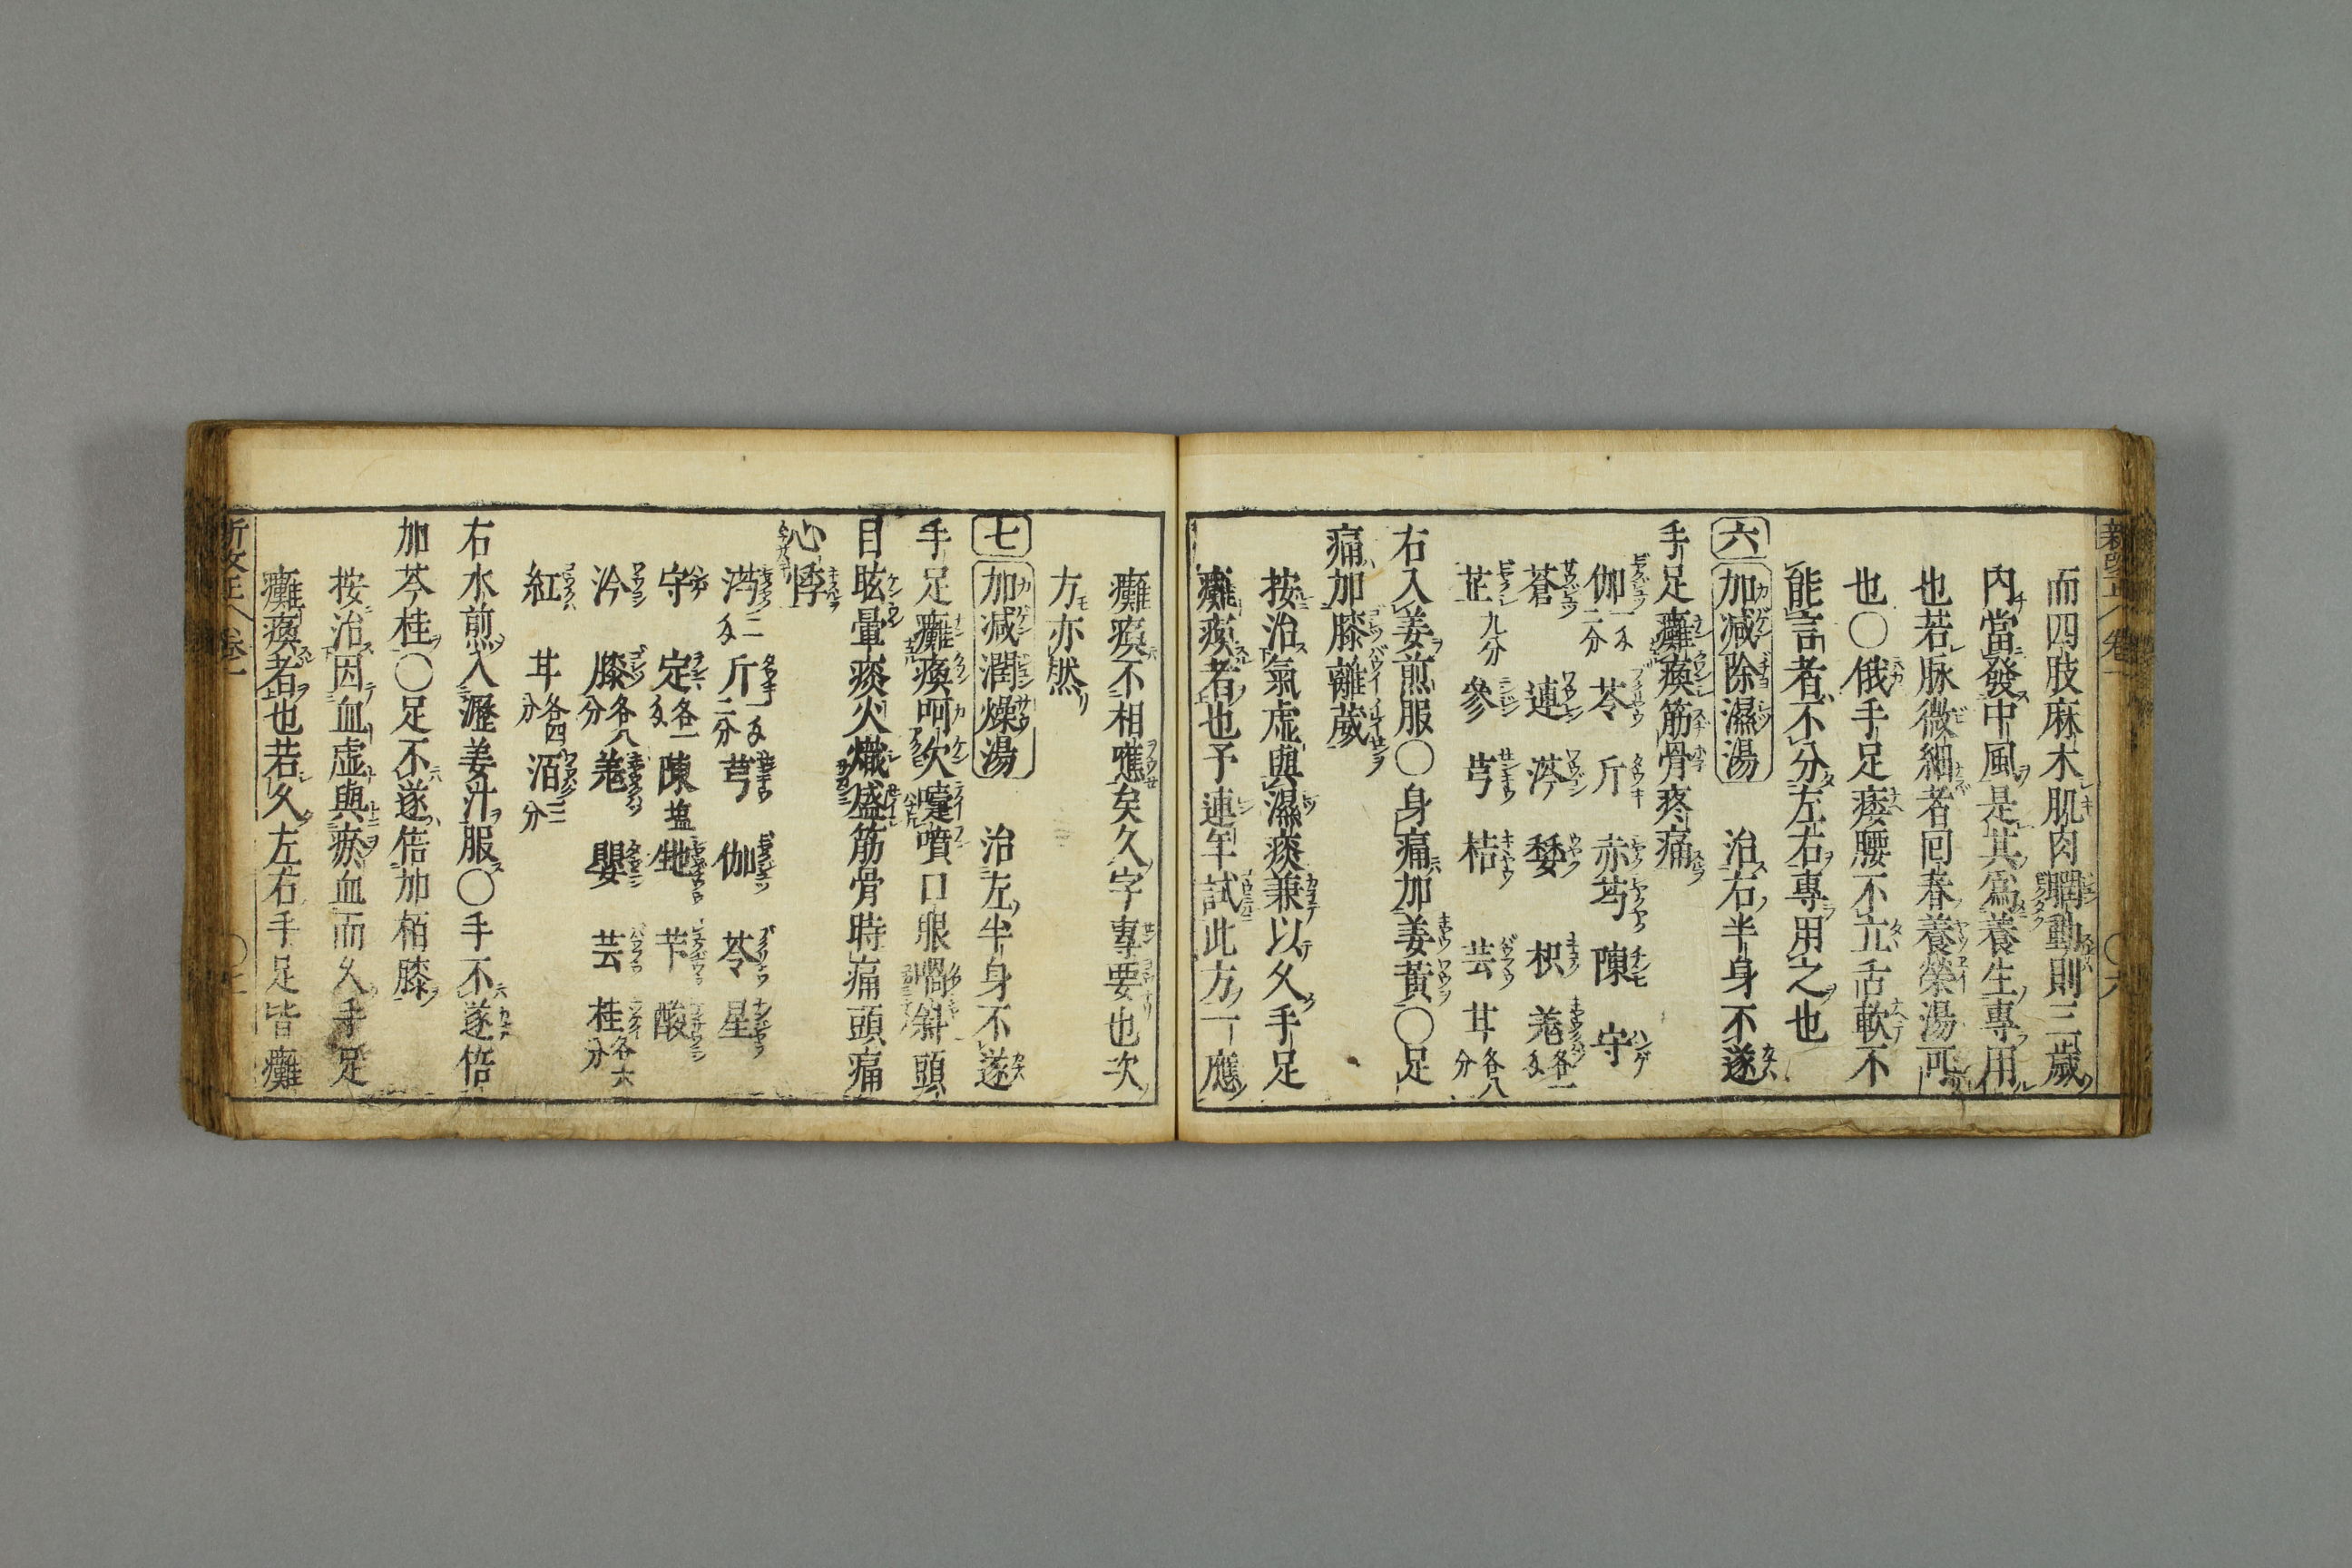 而四肢麻木肌肉瞤動則三歲
內當發中風是其爲養生專用
也若脉微細者囘春養榮湯可
也〇俄手足痿腰不立舌軟不
能言者不分左右專用之也
六 加減除濕湯 治右半身不遂
手足癱瘓筋骨疼痛
伽一二分 苓 斤 赤芍 陳 守
蒼 連 䓁 枳 羗各一
芷九分 參 芎 桔 芸 甘各八分
右入姜煎服〇身痛加姜黃〇足
痛加膝離葳
按治氣虛與濕痰兼以久手足
癱瘓者也予連年試此方一應
癱瘓不相應矣久字専要也次
方亦然
七 加減潤燥湯 治左半身不遂
手足癱瘓呵欠嚏噴口眼喎斜頭
目眩暈痰火熾盛筋骨時痛頭痛
心悸
二 斤一二分 芎 伽 苓 星
守 定各一 陳塩 牠 芐 酸
膝各八分 羗 罌 芸 桂各六分
紅 甘各四分 洦三分
右水煎入瀝姜汁服〇手不遂倍
加芩桂〇足不遂倍加栢膝
按治因血虛與瘀血而久手足
癱瘓者也若久左右手足皆癱
卷一